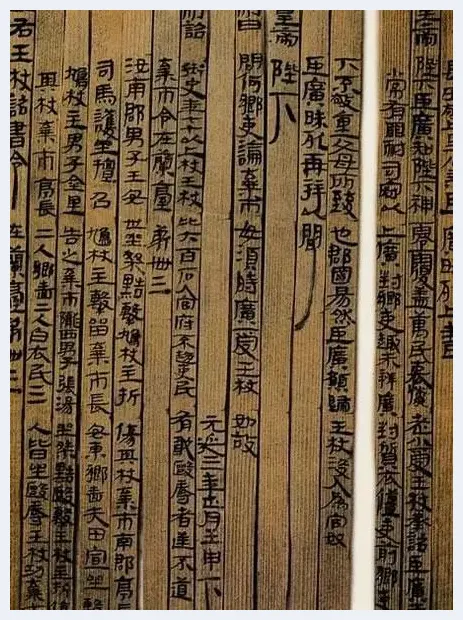 陛下臣廣知陛下神零覆蓋萬民哀憐老小受王杖承詔臣廣
常有罪耐司寇以上廣對鄉吏趣未辨廣對質衣僵吏前鄉吏
下不敬重父母所致也郡國易然臣廣願歸王杖沒入為官奴
臣廣昧死再拜以聞
皇帝陛下
制曰問何鄉吏論棄市毋須時廣受王杖如故
元延三年正月壬申下
制詔御史年七十以上杖王杖比六百石入官府不趨吏民有敢毆辱者逆不道
棄市令在蘭臺第卌三
汝南郡男子王安世坐桀黠擊鳩杖主折傷其杖棄市南郡亭長
司馬護坐擅召鳩杖主擊留棄市長安東鄉嗇夫田宣坐擊
鳩杖主男子金里告之棄市隴西男子張湯坐桀黠毆擊王杖主折傷
其杖棄市亭長二人鄉嗇二人白衣民三人皆坐毆辱王杖功棄市
右王杖詔書令在蘭臺第卌三